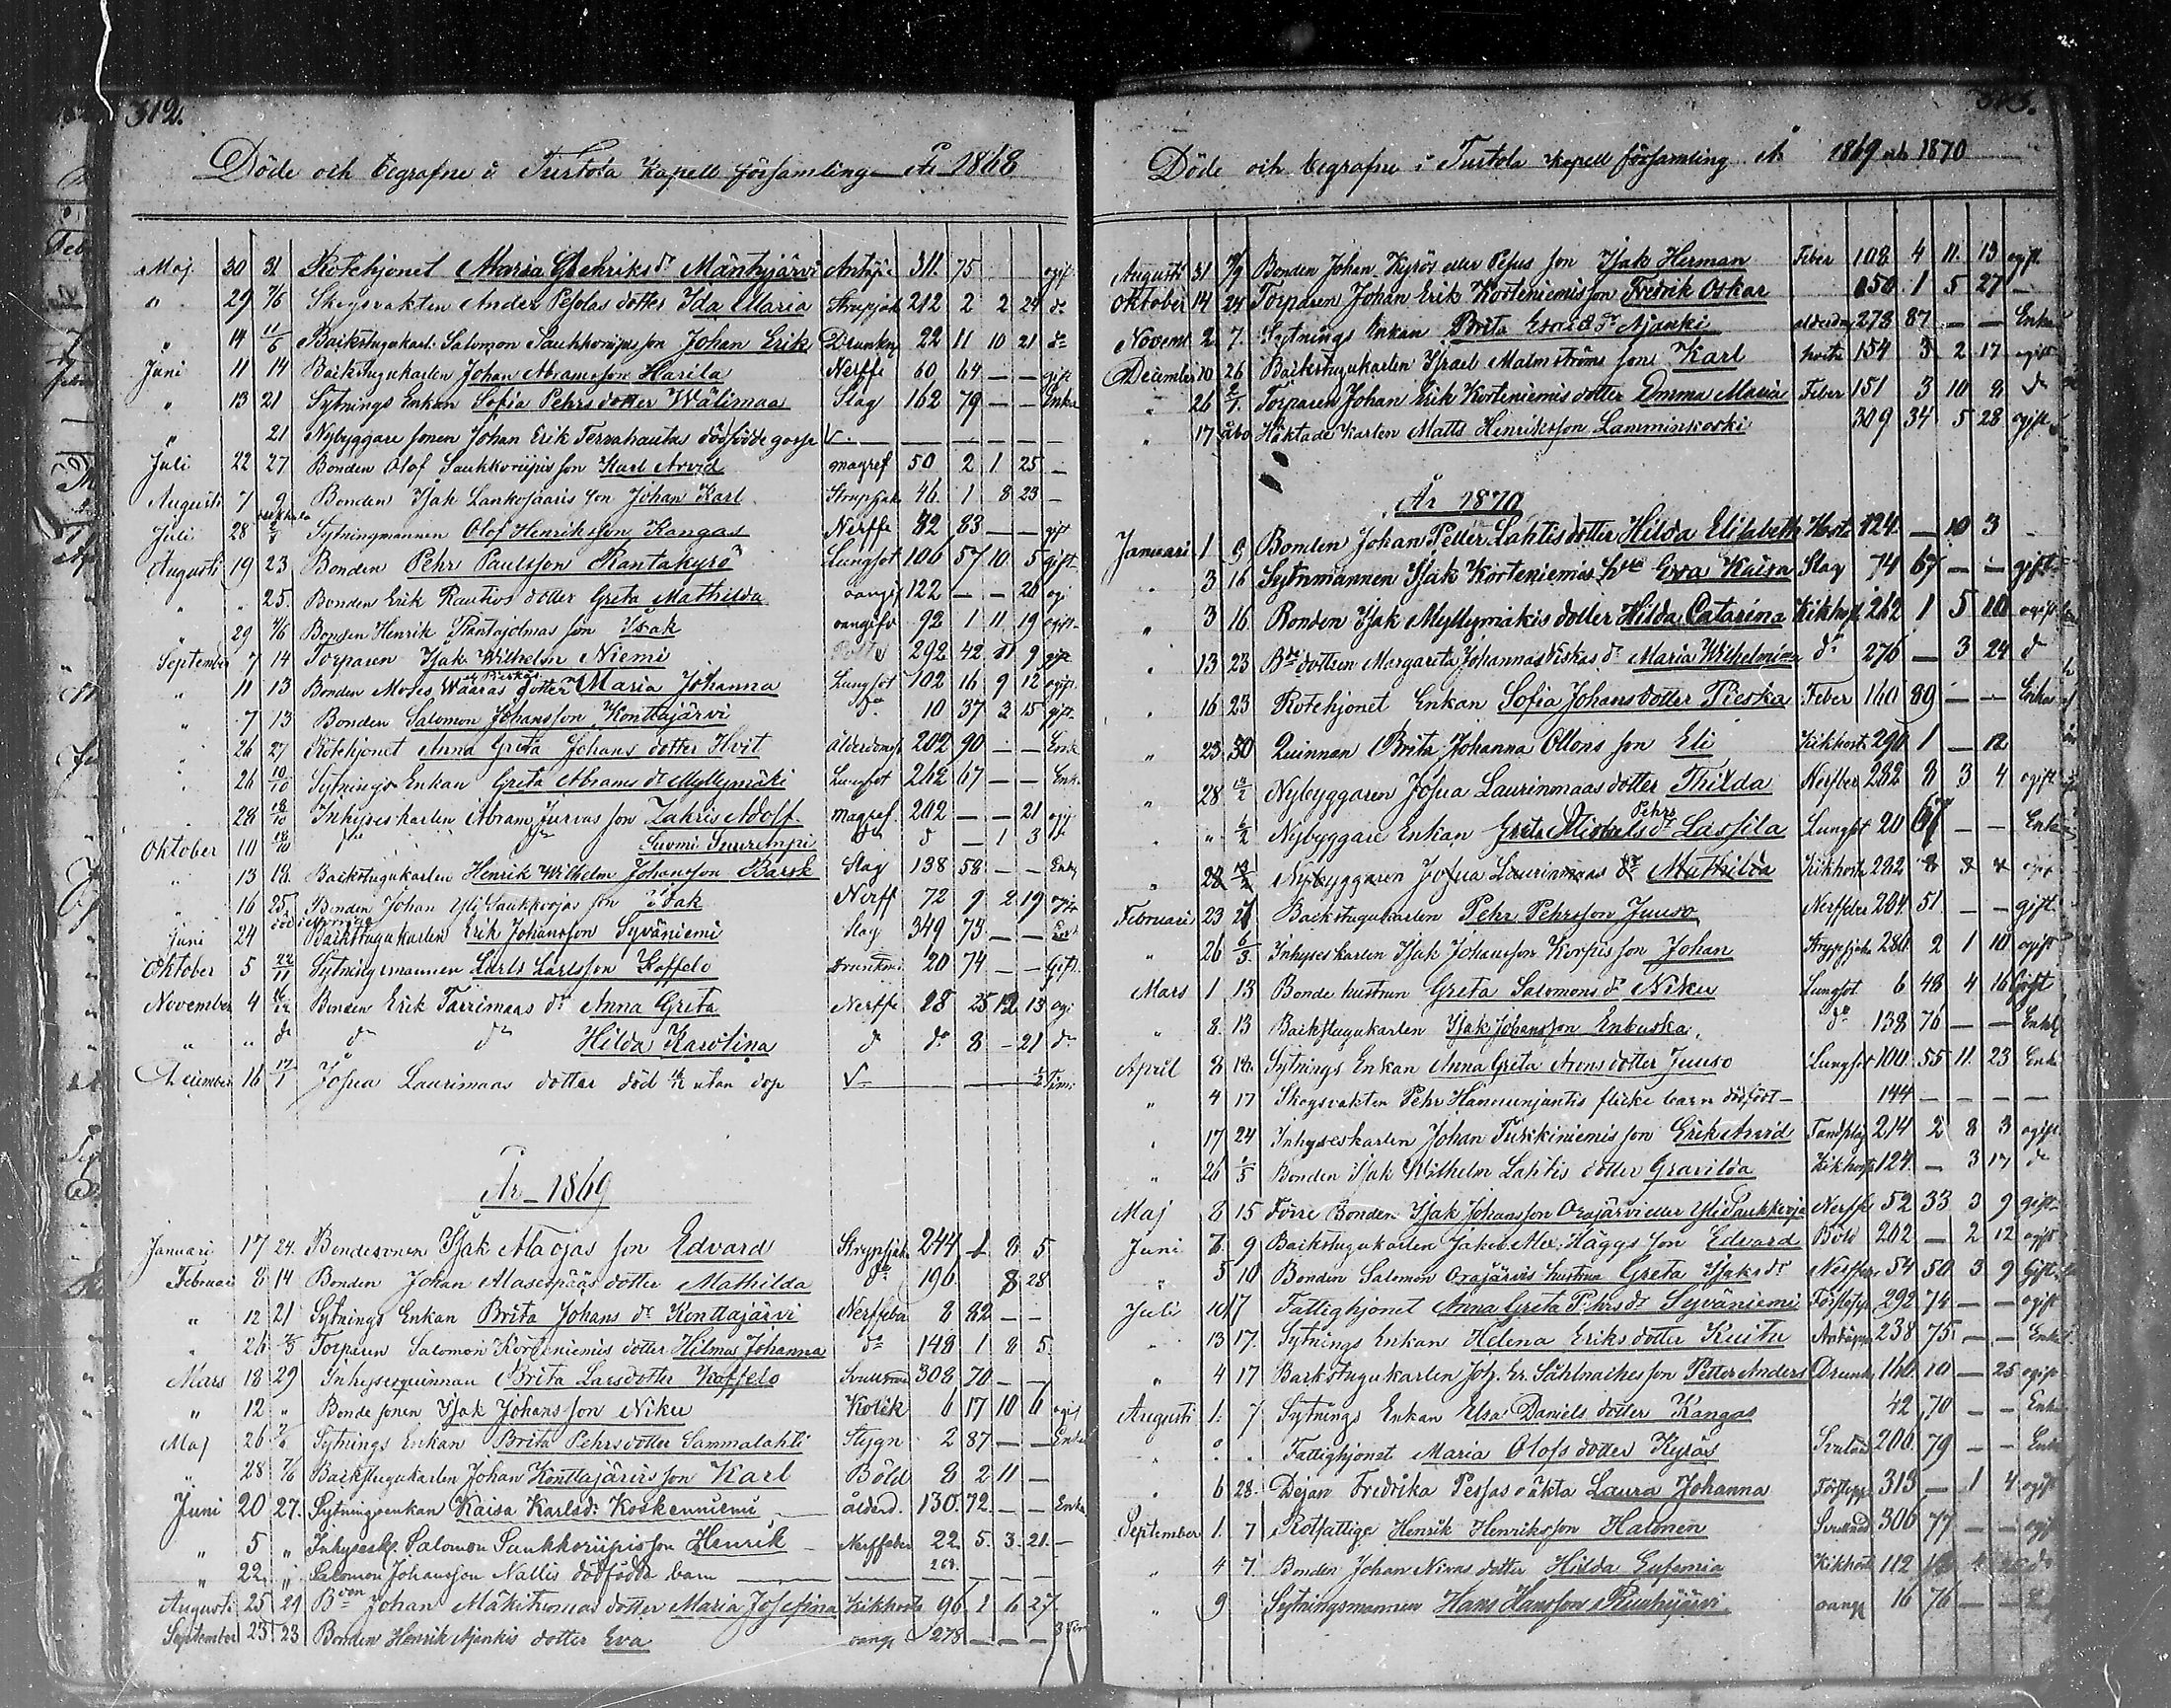 312.
Döde och begrafne i Turtola Kapell församling År 1868
Maj 30 31 Rotehjonet Maria Henriks dr Mäntyjärvi 311 75 ogift
" 29 7/6 Skogsvakten Anders Pessas dotter Ida Maria Strupsjuk 212 2 2 24 do
" 14 11/6 Backstugukarl. Salomon Saukkoriipis son Johan Erik Drunkn 22 11 10 21 do
Juni 11 14 Backstugukarlen Johan Abramsson Harila Nerffe 60 64 — — gift
" 13 21 Sytnings Enkan Sofia Pehrs dotter Wälimaa Slag 162 79 — — Enka
" 21 Nybyggare sonen Johan Erik Tervahautas dödfödde gosse
Juli 22 27 Bonden Olof Saukkoriipis son Karl Arvid magref 50 2 1 25 —
Augusti 7 9 Bonden Isak Lankojääris son Johan Karl Strupsjuk 46 1 8 23 —
Juli 28 Sytningmannen Olof Henriksson Kangas Nerffe 82 83 — — gift
Augusti 19 23 Bonden Pehr Paulsson Rantakyrö Lungsot 106 57 10 5 gift
" " 25. Bonden Erik Rautios dotter Greta Mathilda oangif 122 — — 26 ogi
" 29 4/6 Bonden Henrik son Isak oangifv 92 1 11 19 ogift
September 7 14 Torparen Isak Wilhelm Niemi 292 42 11 9 gift
" 11 13 Bonden Moses Waaras dotter Maria Johanna Lungsot 102 16 9 12 ogift
" 7 13 Bonden Salomon Johansson Konttajärvi 10 37 2 15 gift
" 26 27 Rotehjonet Anna Greta Johans dotter Hvit Ålderdomsv 202 90 — — Enk
" 26 10/10 Sytnings Enkan Greta Abrams dr Myllymäki Lungsot 262 67 — — Enk.
" 28 18/10 Inhyseskarlen Abram Jurvas son Zakris Adolf magref. 202 — — 21 ogi
Oktober 10 18/10 Suomi 5 — 1 3
" 13 18. Backstugukarlen Henrik Wilhelm Johansson Barsk Slag 138 58 — — Enkl
" 16 25. Bonden Johan Yli Saukkojas son Isak Nerff 72 9 2 19 ogift
död i Norrige
Juni 24 Backstugukarlen Erik Johansson Syväniemi Slag 349 73 — —
Oktober 5 22/11 Sytningsmannen Lars Larsson Koffelo Drunkni 20 74 — — Gift.
November 4 Bonden Erik Tarrimaas dr Anna Greta Nerffe 28 25 12 13 ogi
" " do do do Hilda Karolina do do 8 — 21 do
December 16 17/1 Josua Laurimaas dotter död utan dop

År 1869
Januari 17 24. Bondesonen Isak Alaojas son Edvard Strypsjuk 244 1 8 5
Februari 8 14 Bonden Johan Alaseppääs dotter Mathilda do 196 8 28
" 12 21 Sytnings Enkan Brita Johans dr Konttajärvi Nerffeber 8 82 — —
" 26 Torparen Salomon Korteniemis dotter Hilma Johanna do 148 1 8 5
Mars 18 29 Inhysesquinnan Brita Larsdotter Koffelo 308 70 — —
" 12 " Bonde sonen Isak Johansson Niku Kolik 6 17 10 6 ogif
Maj 26 Sytnings Enkan Brita Pehrsdotter Sammalahti Stygn 2 87 — — Enka
" 28 7/6 Backstugukarlen Johan Konttajärvis son Karl Böld 8 2 11 —
Juni 20 27. Sytningsenkan Kaisa Karlsdr Koskenniemi ålderd. 130. 72. — — Enka
" 5 " Inhyseskl. Salomon Saukkoriipis son Henrik Nerffeber 22. 5. 3. 21. —
" 22 " Salomon Johansson Nallis dödfödda barn 268.
Augusti 25 29 Johan Mäkituomas dotter Maria Josefina Kikhosta 96 1 6 27.
September 23 23 Bonden Henrik Ajankis dotter Eva oangf 278 — — —

313.
Döde och begrafne i Turtola kapell församling år 1869 och 1870
Augusti 31 7/9 Bonden Johan Kyrös eller Pesus son Isak Herman Feber 108 4 11. 13 ogift
Oktober 14 24 Torparen Johan Erik Korteniemis son Fredrik Oskar 150 1 5 27 —
Novemb 2 7. Sytnings Enkan Brita Esaie dr Ajanki 278 87 — — Enka
December 10 26 Backstugukarlen Israel Malmströms son Karl hosta 154 3 2 17 ogift
" 26 2/1. Torparen Johan Erik Korteniemis dotter Emma Maria Feber 151 3 10 8 do
" 17 Åbo Häktade karlen Matts Henriksson Lamminkoski 309 34 5 28 ogift

År 1870
Januari 1 9 Bonden Johan Petter Lahtis dotter Hilda Elisabeth Hosta 124 — 10 3 —
" 3 16 Sytnmannen Isak Korteniemis hu Eva Kaisa Slag 74 67 — — gift
" 3 16 Bonden Isak Myllymäkis dotter Hilda Catarina Kikhost 262 1 5 10 ogift
" 13 23 dottren Margareta Johannas Niskas dr Maria Wilhelmina do 276 — 3 24 do
" 16 23 Rotehjonet Enkan Sofia Johansdotter Pieska Feber 160 89 — — Enka
" 23 30 Quinnan Brita Johanna Ollons son Eli Kikhosta 290 1 — 12
" 28 Nybyggaren Josua Laurinmaas dotter Thilda Nerfber 282 8 3 4 ogift
" " 6/2 Nybyggare Enkan Greta Pehrs dr Lassila Lungsot 20 67 — — Enka
" 28 Nybyggaren Josua Laurinmaas dr Mathilda Kikhosta 282 8 3 4 ogif
Februari 23 27 Backstugukarlen Pehr Pehrsson Juuso Nerffeber 204. 51 — — gift
" 26 6/3. Inhyseskarlen Isak Johansson Korpis son Johan Strypsjuka 286. 2 1 10 ogift
Mars 1 13 Bonde hustrun Greta Salomons dr Niku Lungsot 6 48 4 16 Gift
" 8. 13 Backstugukarlen Isak Johansson Enbuska, do 138 76 — — Enkl
April 8 18. Sytnings Enkan Anna Greta Arons dotter Juuso Lungsot 100. 55 11. 23 Enka
" 4 17 Skogsvakten Pehr Hannunjuntis flicke barn dödfödt — 144 — — — —
" 17 24 Inhyseskarlen Johan Turkkiniemis son Erik Arvid Tandslag 214 2 8 3 ogift
" 26 1/5 Bonden Isak Wilhelm Lahtis dotter Gravilda Kikhosta 124. — 3 17 do
Maj 8 15 Förre Bonden Isak Johansson Orajärvi eller Yli Saukkoja Nerffe 52 33 3 9 gift
Juni 6. 9 Backstugukarlen Jakob Alex. Häggs son Edvard Böld 202 — 2 12 ogift
" 5 10 Bonden Salomon Orajärvis hustru Greta Isaksdr Nerffeber 54 50 3 9 Gift
Juli 10 17 Fattighjonet Anna Greta Pehrs dr Syväniemi 292 74 — — ogift
" 13 17. Sytnings Enkan Helena Eriks dotter Kuitu 238 75 — — Enka
" 4 17 Backstugukarlen Joh. Er. son Petter Anders Drunkn 160 10 — 25 ogift
Augusti 1. 7 Sytnings Enkan Elsa Daniels dotter Kangas 42 70 — — Enka
" " . Fattighjonet Maria Olofs dotter Kyrös 206 79 — — Enka
" 6 28. Dejan Fredrika Pessas oäkta Laura Johanna 313 — 1 4 ogift
September 1. 7 Rotfattige Henrik Henriksson Halonen 306 77 — — ogift
" 4 7. Bonden Johan Nivas dotter Hilda Eufemia Kikhost 112
" 9 Sytningsmannen Hans Hansson oangf 16 76 — —